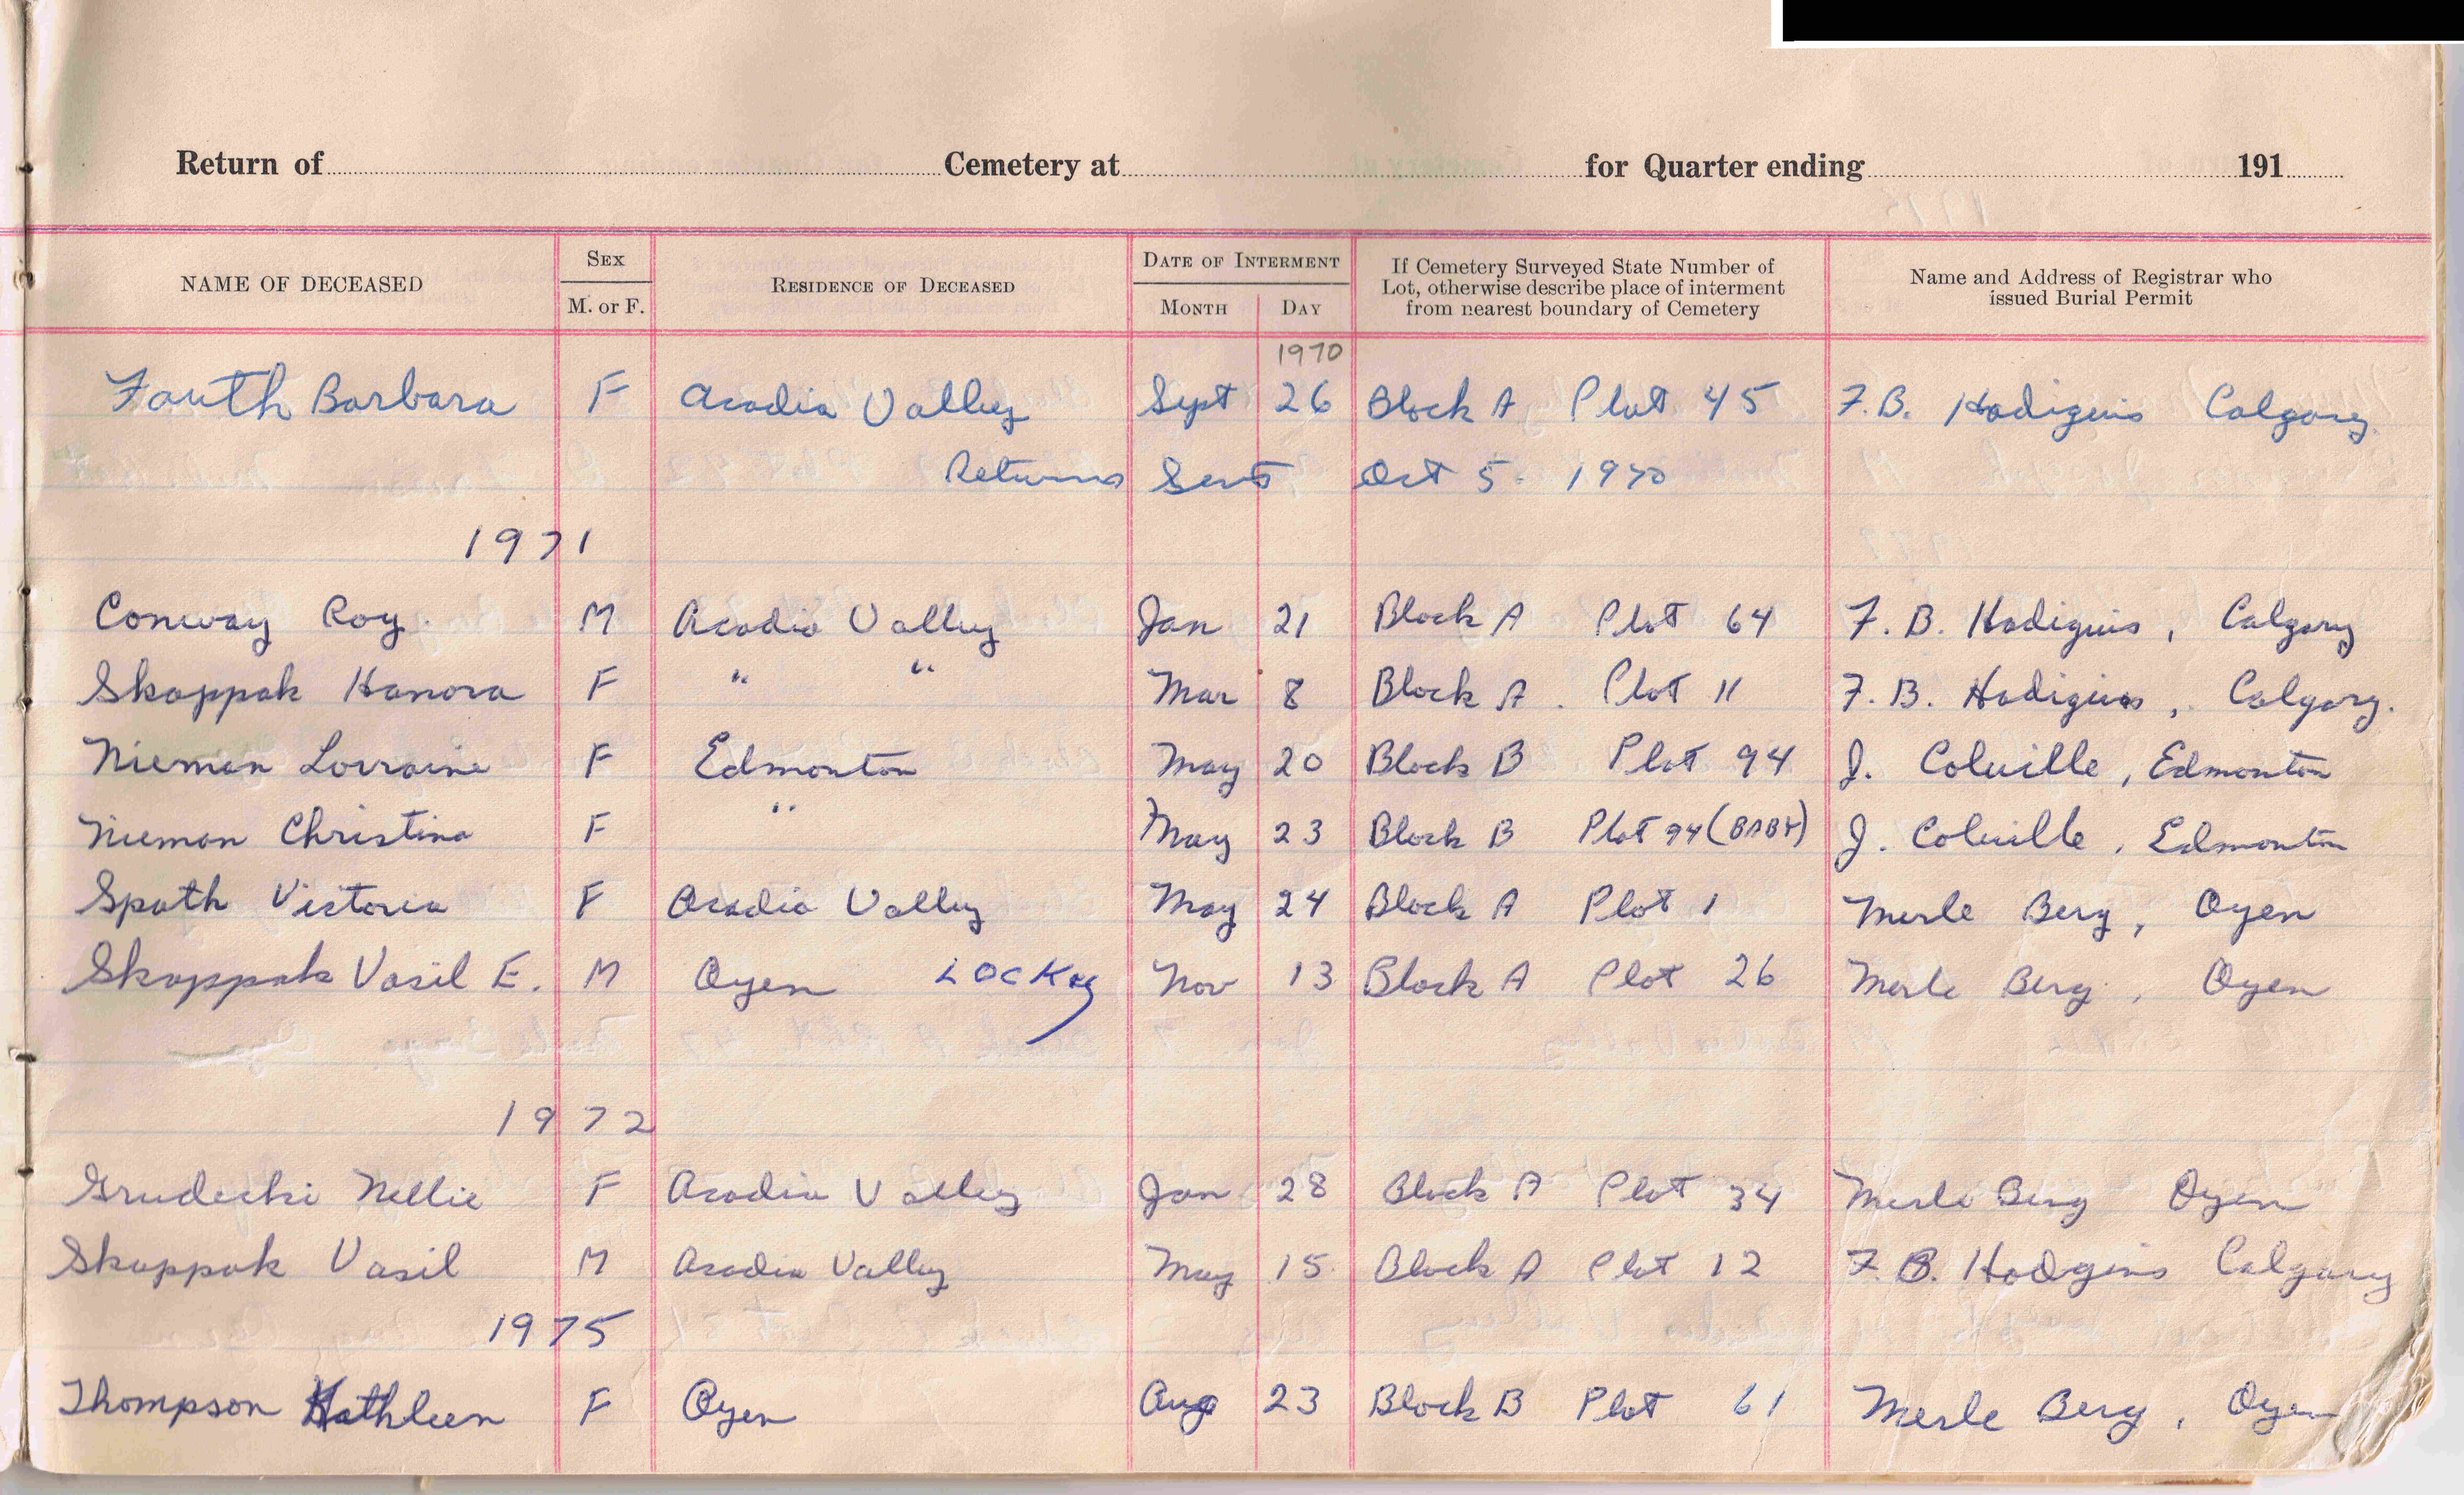 Return of Cemetery at for Quarter ending 191
NAME OF DECEASED SEX M. or F. RESIDENCE OF DECEASED DATE OF INTERMENT MONTH DAY If Cemetery Surveyed State Number of Lot, otherwise describe place of interment from nearest boundary of Cemetery Name and Address of Registrar who issued Burial Permit
1970
Fauth Barbara F Acadia Valley Sept 26 Block A Plot 45 F.B. Hodigins Calgary
Returns Sent Oct 5. 1970
1971
Conway Roy. M Acadia Valley Jan 21 Block A Plot 64 F. B. Hodigins, Calgary
Skappak Hanora F " " Mar 8 Block A. Plot 11 F. B. Hodigins, Calgary.
Nieman Lorraine F Edmonton May 20 Block B Plot 94 J. Colville, Edmonton
Nieman Christina F " May 23 Block B Plot 94 (BABY) J. Colville, Edmonton
Spath Victoria F Acadia Valley May 24 Block A Plot 1 Merle Berg, Oyen
Skappak Vasil E. M Oyen Nov 13 Block A Plot 26 Merle Berg, Oyen
1972
Grudecki Nellie F Acadia Valley Jan 28 Block A Plot 34 Merle Berg Oyen
Skappak Vasil M Acadia Valley May 15 Block A Plot 12 F. B. Hodgins Calgary
1975
Thompson Kathleen F Oyen Aug 23 Block B Plot 61 Merle Berg, Oyen